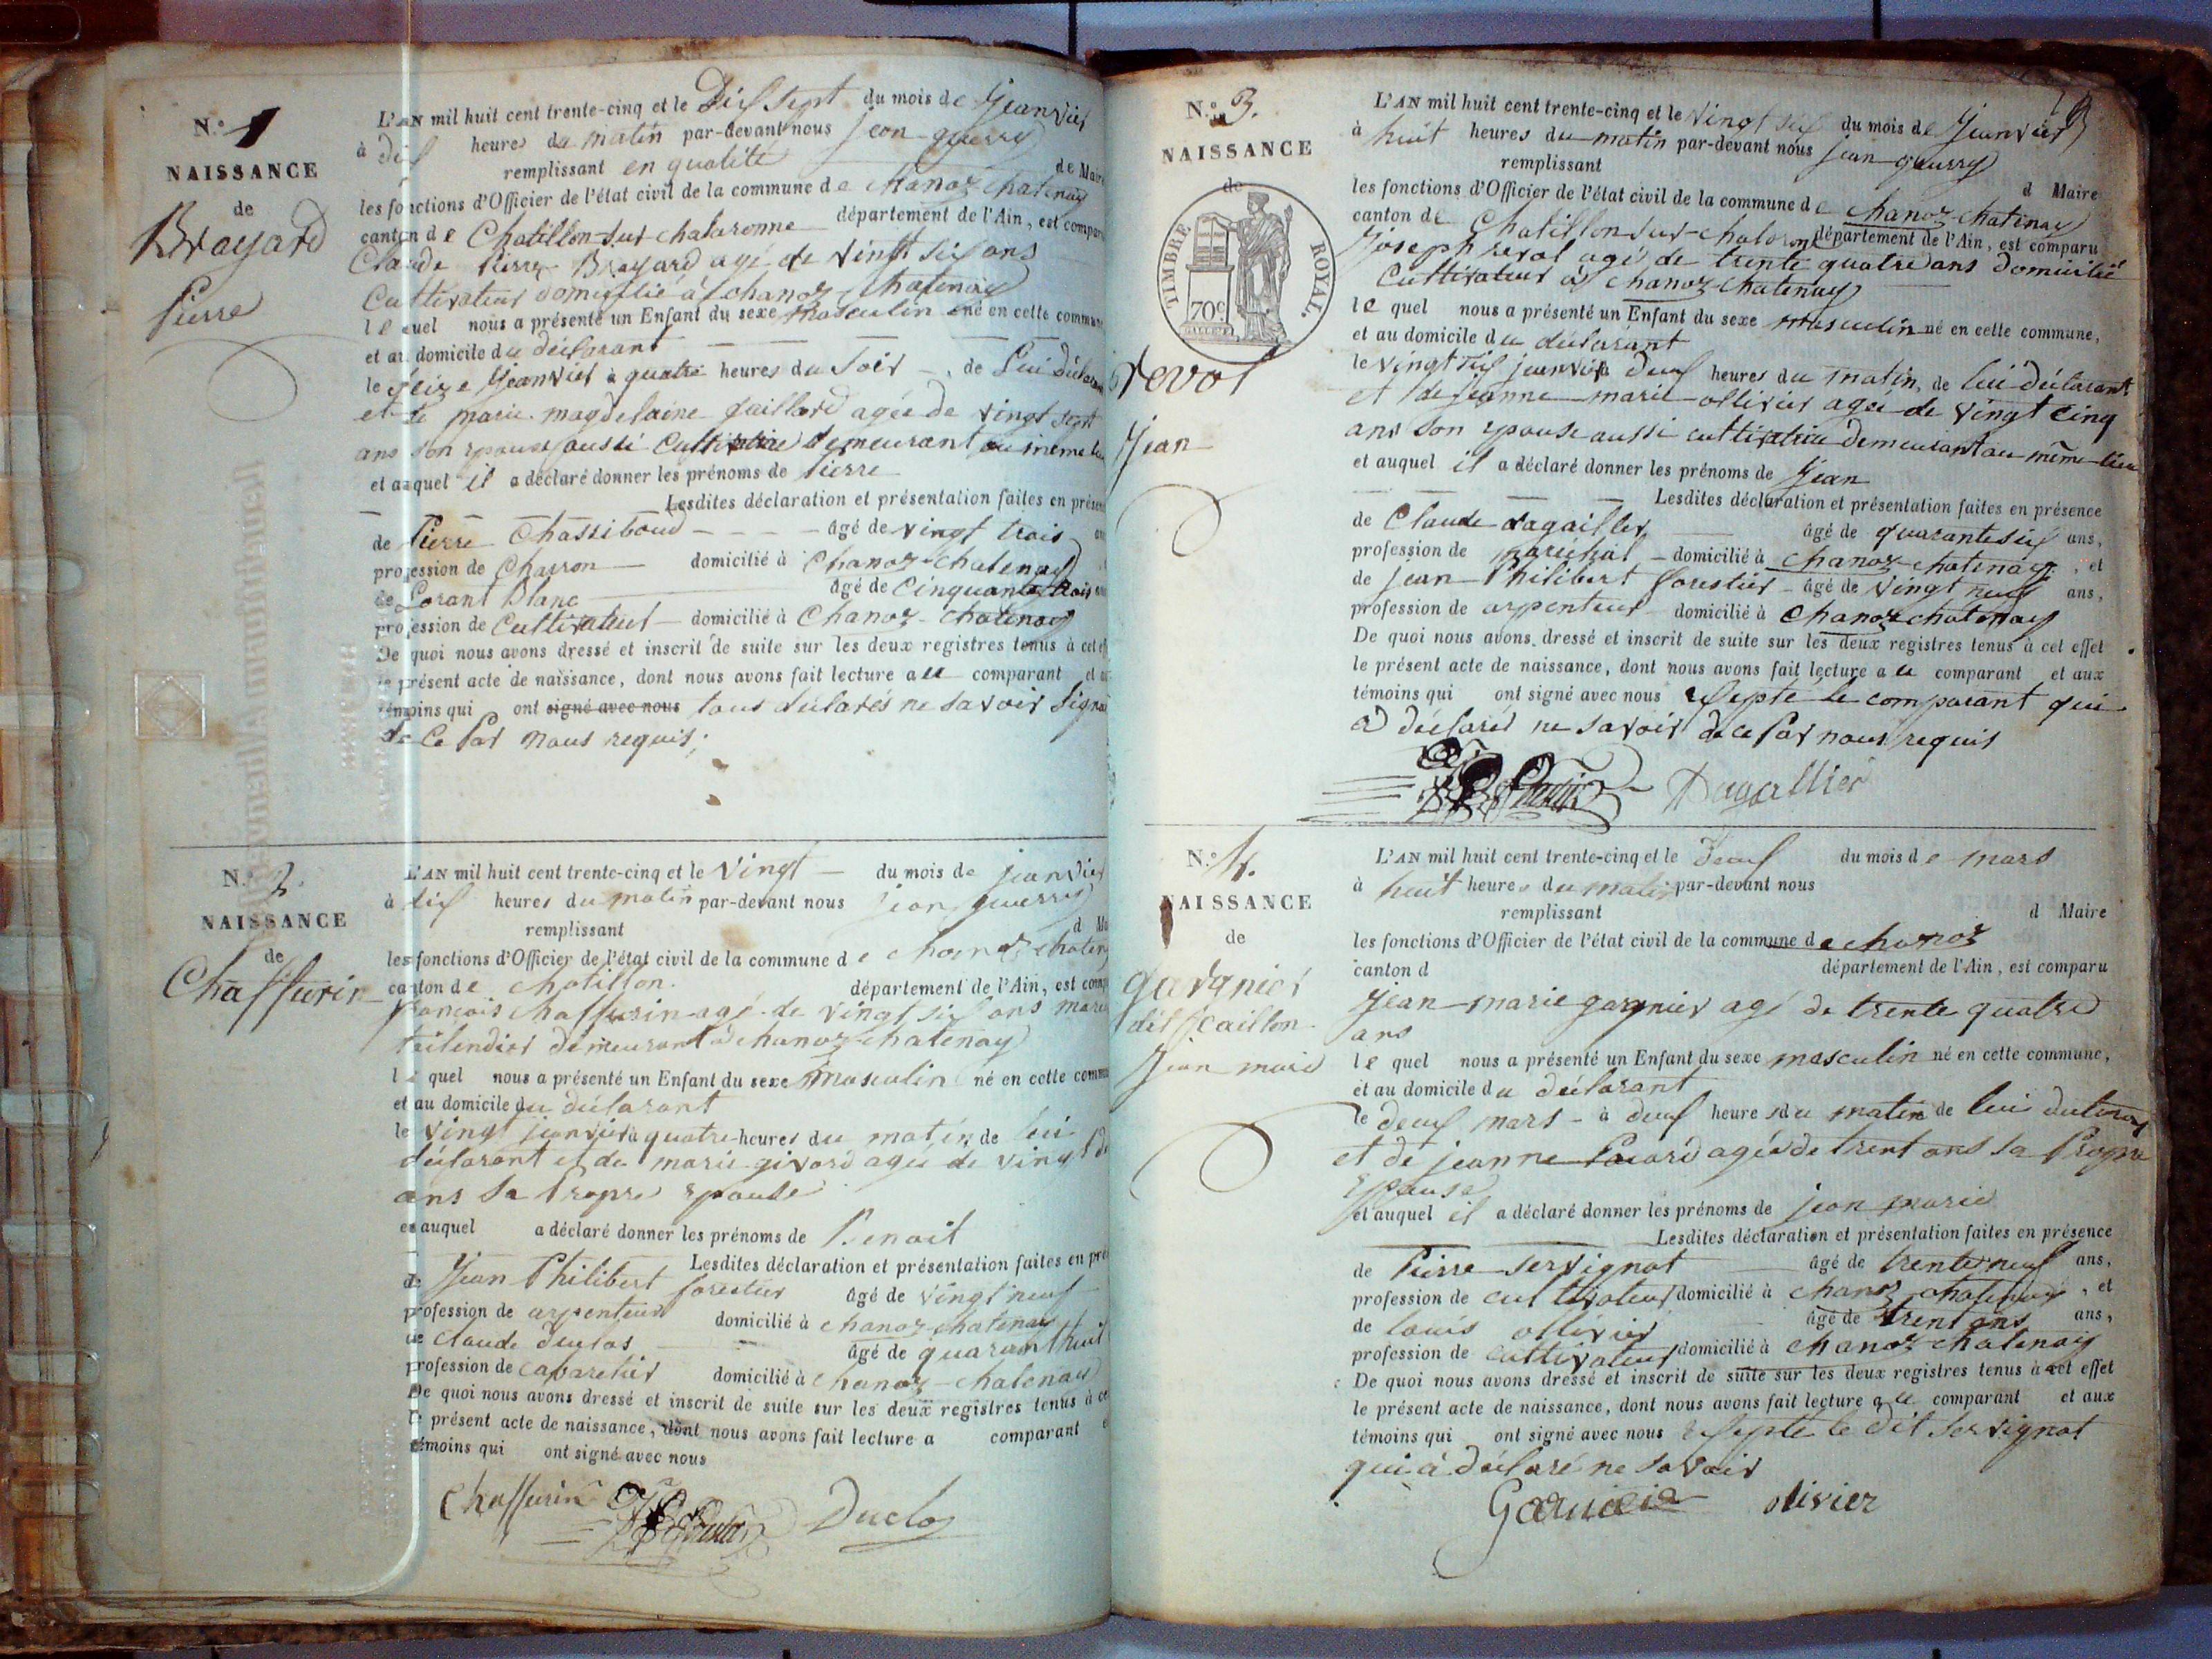 N.º 1
NAISSANCE
de
Brayard
Pierre
L'AN mil huit cent trente-cinq et le Dix sept du mois de Jeanvier
à dix heures du matin par-devant nous jean guerry
remplissant en qualité de Maire
les fonctions d'Officier de l'état civil de la commune de chanoz chatenay
canton de Chatillon-sur-chalaronne département de l'Ain, est comparu
Claude Pierre Brayard agé de vingt six ans
Cultivateur domicilié à chanoz chatenay
lequel nous a présenté un Enfant du sexe masculin né en cette commune
et au domicile du déclarant
le seize Jeanvier à quatre heures du soir de lui déclarant
et de marie magdelaine gaillard agée de vingt sept
ans son epouse aussi Cultivatrice demeurant au même lieu
et auquel il a déclaré donner les prénoms de Pierre
Lesdites déclaration et présentation faites en présence
de Pierre Chassiboud âgé de vingt trois ans
profession de Charron domicilié à Chanoz-chatenay
de Lorant Blanc âgé de cinquante trois ans
profession de Cultivateur domicilié à Chanoz-chatenay
De quoi nous avons dressé et inscrit de suite sur les deux registres tenus à cet effet
le présent acte de naissance, dont nous avons fait lecture au comparant et aux
témoins qui ont signé avec nous tous déclarés ne savoir signer
de ce par nous requis;
N.º 2.
NAISSANCE
de
Chaffurin
L'AN mil huit cent trente-cinq et le vingt du mois de jeanvier
à dix heures du matin par-devant nous jean guerry
remplissant d Maire
les fonctions d'Officier de l'état civil de la commune de chanoz chatenay
canton de chatillon. département de l'Ain, est comparu
françois chaffurin agé de vingt six ans
taillendier demeurant à chanoz-chatenay
lequel nous a présenté un Enfant du sexe masculin né en cette commune
et au domicile du déclarant
le vingt jeanvier à quatre heures du matin de lui
déclarant et de marie givord agée de vingt
ans sa propre epouse
et auquel a déclaré donner les prénoms de Benoit
Lesdites déclaration et présentation faites en présence
de Jean Philibert forestier âgé de vingt neuf
profession de arpenteur domicilié à chanoz-chatenay
de claude duclos âgé de quarant huit
profession de cabaretier domicilié à chanoz-chatenay
De quoi nous avons dressé et inscrit de suite sur les deux registres tenus à cet
le présent acte de naissance, dont nous avons fait lecture a comparant et
témoins qui ont signé avec nous
Chaffurin Duclos
N.º 3.
NAISSANCE
de
TIMBRE ROYAL.
70c
revol
Jean
L'AN mil huit cent trente-cinq et le vingt six du mois de Jeanvier
à huit heures du matin par-devant nous jean guerry
remplissant d Maire
les fonctions d'Officier de l'état civil de la commune de chanoz-chatenay
canton de Chatillon sur chalaronne département de l'Ain, est comparu
Joseph revol agé de trente quatre ans domicilié
Cultivateur à chanoz-chatenay
lequel nous a présenté un Enfant du sexe masculin né en cette commune,
et au domicile du déclarant
le vingt six jeanvier à deux heures du matin, de lui déclarant
et de jeanne marie ollivier agée de vingt cinq
ans son epouse aussi cultivatrice demeurant au même lieu
et auquel il a déclaré donner les prénoms de Jean
Lesdites déclaration et présentation faites en présence
de Claude dagallier âgé de quarante six ans,
profession de maréchal domicilié à chanoz-chatenay, et
de jean Philibert forestier âgé de vingt neuf ans,
profession de arpenteur domicilié à chanoz chatenay
De quoi nous avons dressé et inscrit de suite sur les deux registres tenus à cet effet
le présent acte de naissance, dont nous avons fait lecture au comparant et aux
témoins qui ont signé avec nous exepté le comparant qui
a déclarés ne savoir de ce par nous requis
Dagallier
N.º 4.
NAISSANCE
de
garanier
dit
Jean marie
L'AN mil huit cent trente-cinq et le deux du mois de mars
à huit heures du matin par-devant nous
remplissant d Maire
les fonctions d'Officier de l'état civil de la commune de chanoz
canton d département de l'Ain, est comparu
Jean-marie garnier agé de trente quatre
ans
lequel nous a présenté un Enfant du sexe masculin né en cette commune,
et au domicile du déclarant
le deux mars à deux heures du matin de lui déclarant
et de jeanne agée de trent ans sa Propre
Epouse
et auquel il a déclaré donner les prénoms de jean marie
Lesdites déclaration et présentation faites en présence
de Pierre servignat âgé de trente neuf ans,
profession de cultivateur domicilié à chanoz chatenay, et
de louis ollivier âgé de trent ans ans,
profession de cultivateur domicilié à chanoz-chatenay
De quoi nous avons dressé et inscrit de suite sur les deux registres tenus à cet effet
le présent acte de naissance, dont nous avons fait lecture au comparant et aux
témoins qui ont signé avec nous exepté le dit servignat
qui à déclaré ne savoir
olivier